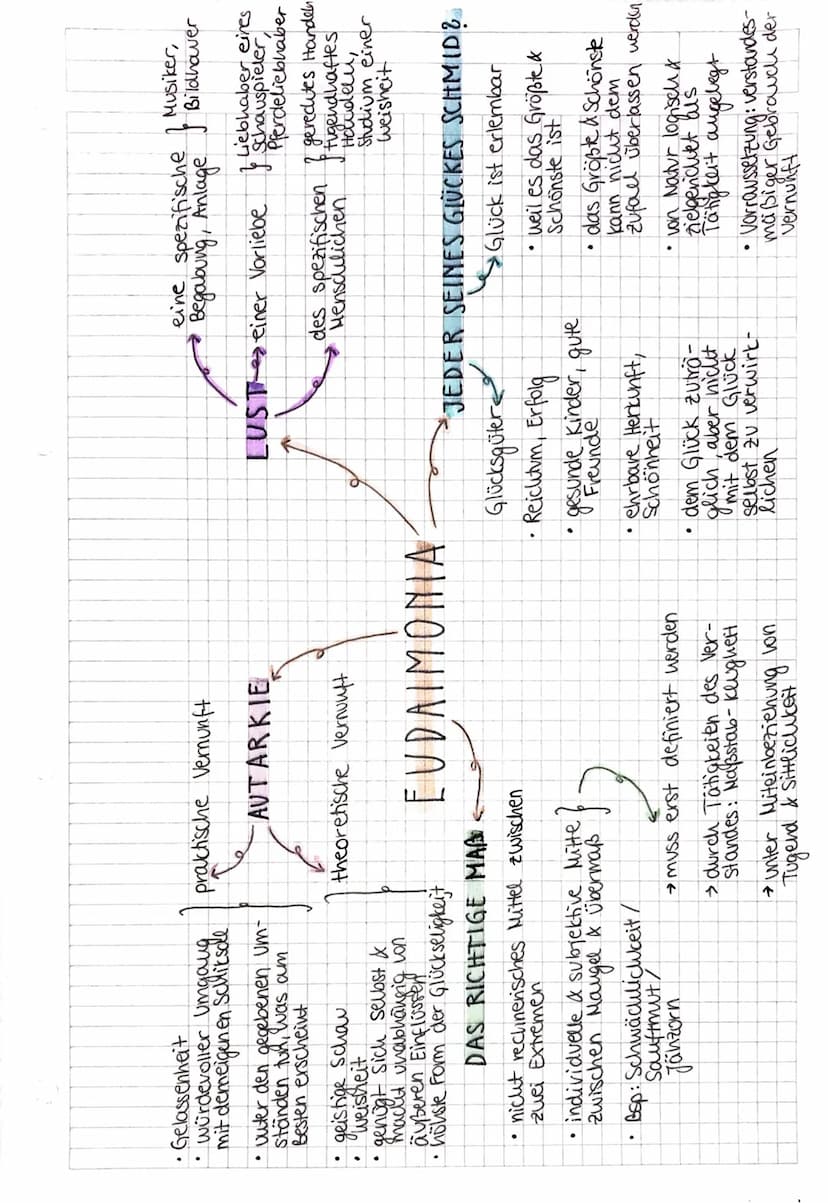 EUDAIMONIA
AUTARKIE
praktische Vernunft
• Gelassenheit
• würdevoller Umgang
mit dem eigenen Schicksal
• unter den gegebenen Um-
ständen tun, was am
Besten erscheint
theoretische Vernunft
• geistige Schau
• Weisheit
• genügt sich selbst &
macht unabhängig von
äußeren Einflüssen
• höchste Form der Glückseligkeit
LUST
eine spezifische
Begabung, Anlage
Musiker,
Bildhauer
einer Vorliebe
Liebhaber eines
Schauspieler,
Pferdeliebhaber
des spezifischen
Menschlichen
gerechtes Handeln
tugendhaftes
Handeln,
Studium einer
Weisheit
DAS RICHTIGE MAß
• nicht rechnerisches Mittel zwischen
zwei Extremen
• individuelle & subjektive Mitte
zwischen Mangel & Übermaß
• Bsp: Schwächlichkeit/
Sanftmut/
Jähzorn
→ muss erst definiert werden
→ durch Tätigkeiten des Ver-
standes: Maßstab - Klugheit
→ unter Miteinbeziehung von
Tugend & Sittlichkeit
JEDER SEINES GLÜCKES SCHMID?
Glücksgüter
• Reichtum, Erfolg
• gesunde Kinder, gute
Freunde
• ehrbare Herkunft,
Schönheit
• dem Glück zuträ-
glich, aber nicht
mit dem Glück
selbst zu verwirk-
lichen
Glück ist erlernbar
• weil es das Größte &
Schönste ist
• das Größte & Schönste
kann nicht dem
Zufall überlassen werden
• von Natur logisch &
zielgerichtet als
Tätigkeit angelegt
• Vorraussetzung: verstandes-
mäßiger Gebrauch der
Vernunft